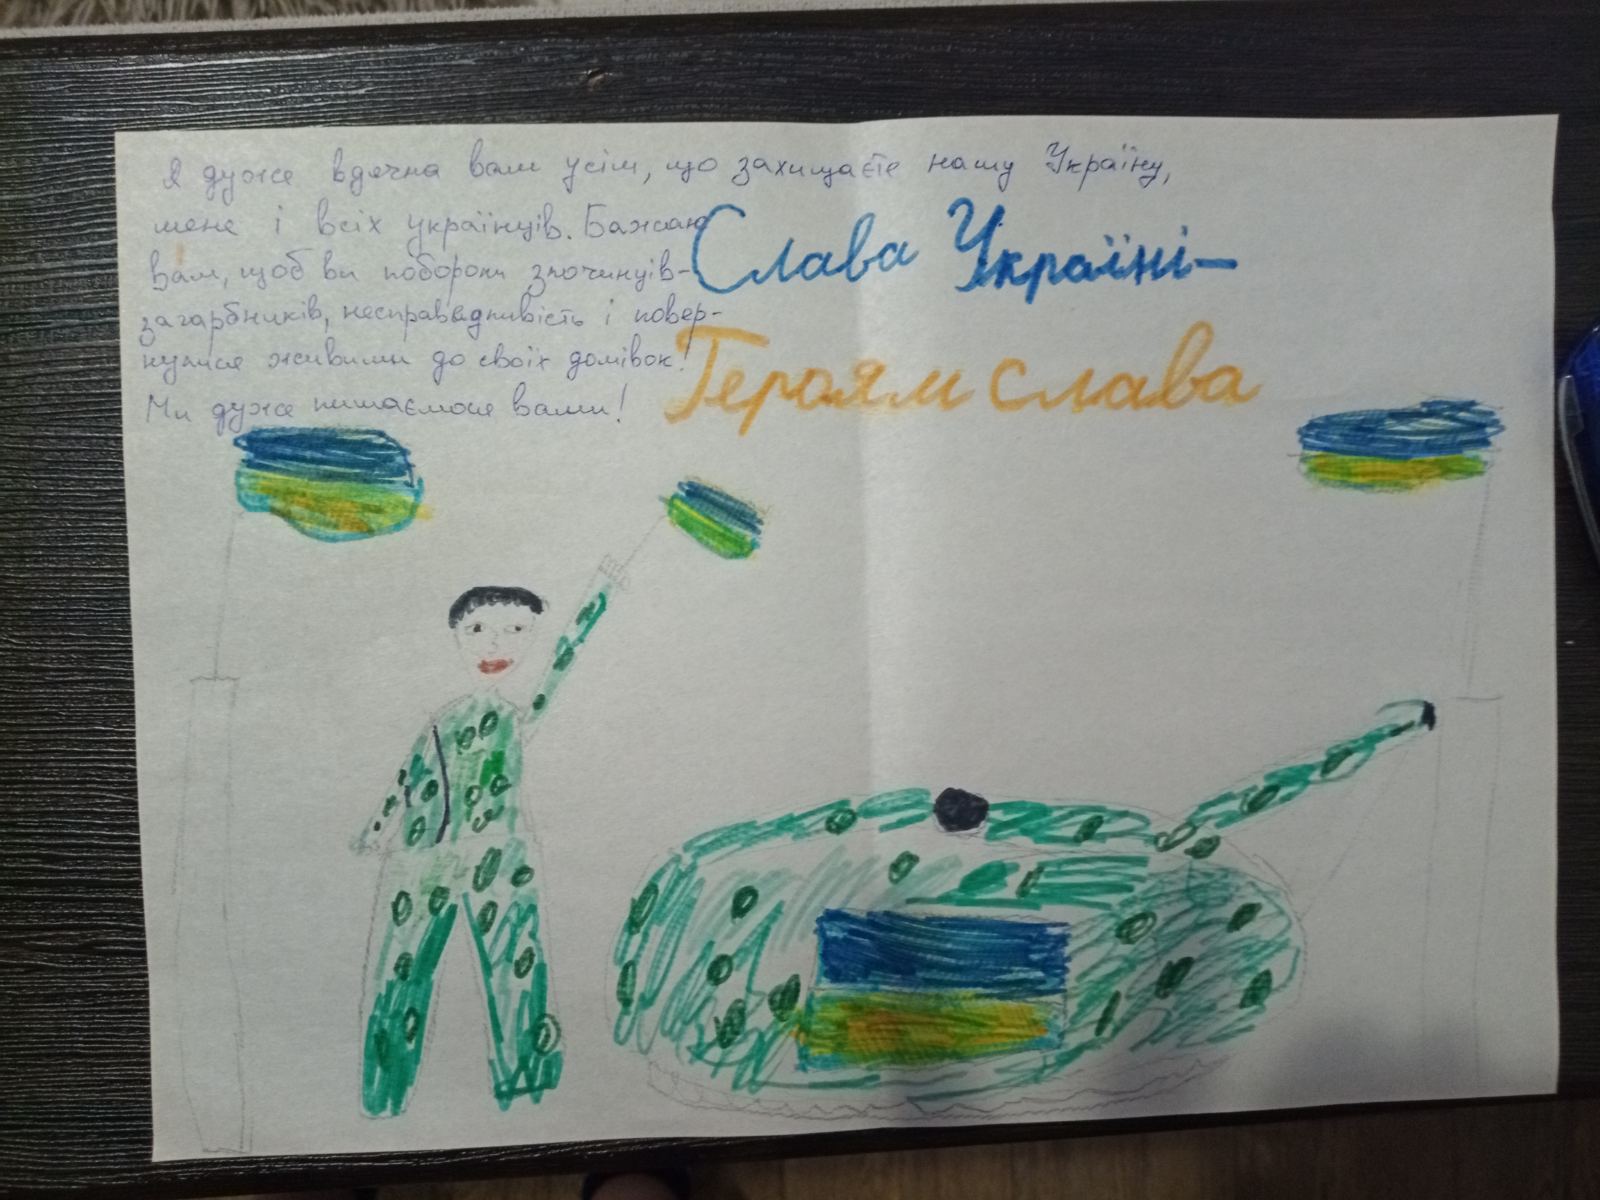 Я дуже вдячна вам усім, що захищаєте нашу Україну,
мене і всіх українців. Бажаю
вам, щоб ви побороли злочинців-
загарбників, несправедливість і повер-
нулися живими до своїх домівок!
Ми дуже пишаємося вами!
Слава Україні-
Героям слава